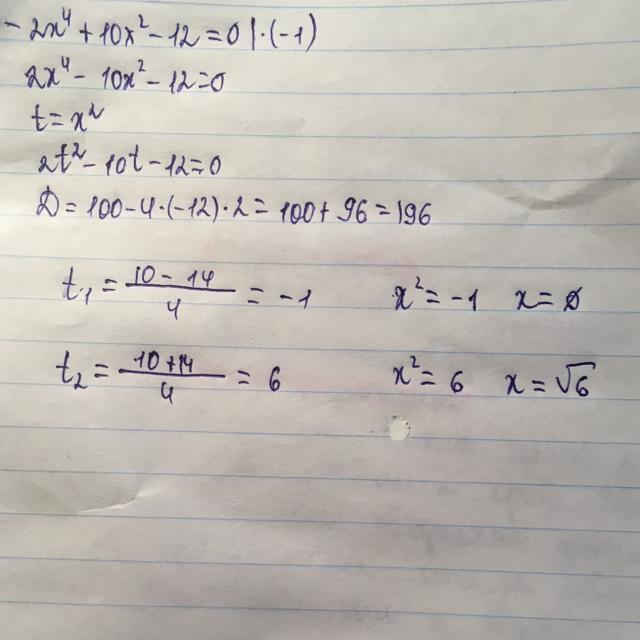 - 2x⁴ + 10x² - 12 = 0 | · (-1)
2x⁴ - 10x² - 12 = 0
t = x²
2t² - 10t - 12 = 0
D = 100 - 4 · (-12) · 2 = 100 + 96 = 196
t₁ = (10 - 14)/4 = -1 x² = -1 x = ∅
t₂ = (10 + 14)/4 = 6 x² = 6 x = √6